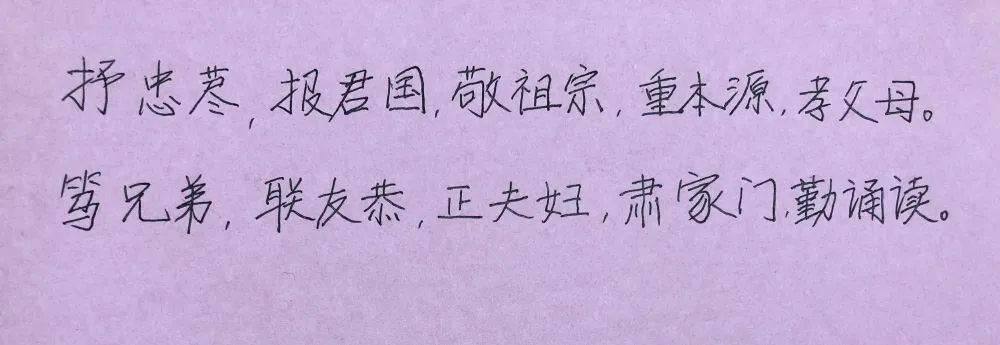 抒忠荩,报君国,敬祖宗,重本源,孝父母。
笃兄弟,联友恭,正夫妇,肃家门,勤诵读。